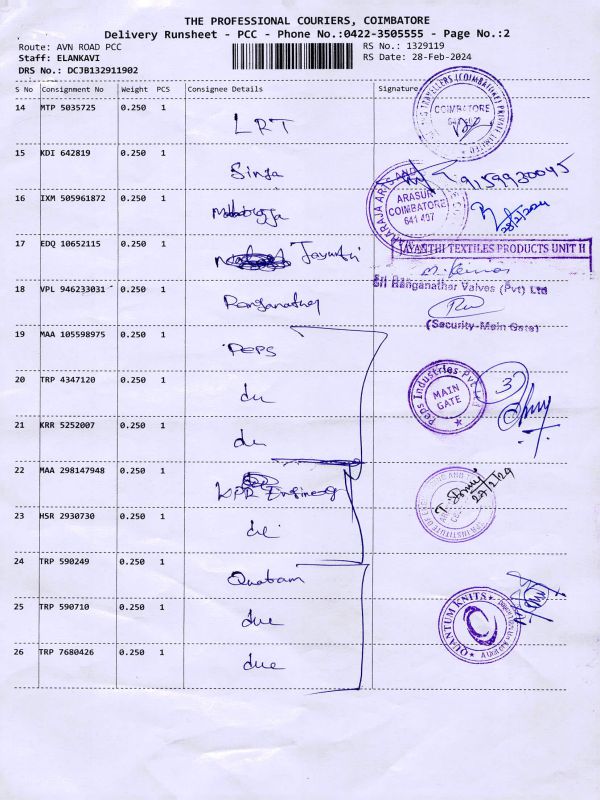 THE PROFESSIONAL COURIERS, COIMBATORE
Delivery Runsheet - PCC - Phone No.:0422-3505555 - Page No.:2
Route: AVN ROAD PCC
RS No.: 1329119
Staff: ELANKAVI
RS Date: 28-Feb-2024
DRS No.: DCJB132911902
S No Consignment No Weight PCS Consignee Details Signature
14 MTP 5035725 0.250 1 LRT
COIMBATORE
15 KDI 642819 0.250 1 Singa
9159930045
16 IXM 505961872 0.250 1
ARASUR
COIMBATORE
641 407
28/2/2024
17 EDQ 10652115 0.250 1 Jayanthi
JAYANTHI TEXTILES PRODUCTS UNIT II
18 VPL 946233031 0.250 1 Ranganather
Sri Ranganathar Valves (Pvt) Ltd
(Security-Main Gate)
19 MAA 105598975 0.250 1 PEPS
Peps Industries Pvt Ltd
MAIN
GATE
3
20 TRP 4347120 0.250 1 du
21 KRR 5252007 0.250 1 du
22 MAA 298147948 0.250 1 KPR Engineeg
28/2/24
23 HSR 2930730 0.250 1 du
24 TRP 590249 0.250 1 Quatam
QUANTUM KNITS
25 TRP 590710 0.250 1 due
26 TRP 7680426 0.250 1 due